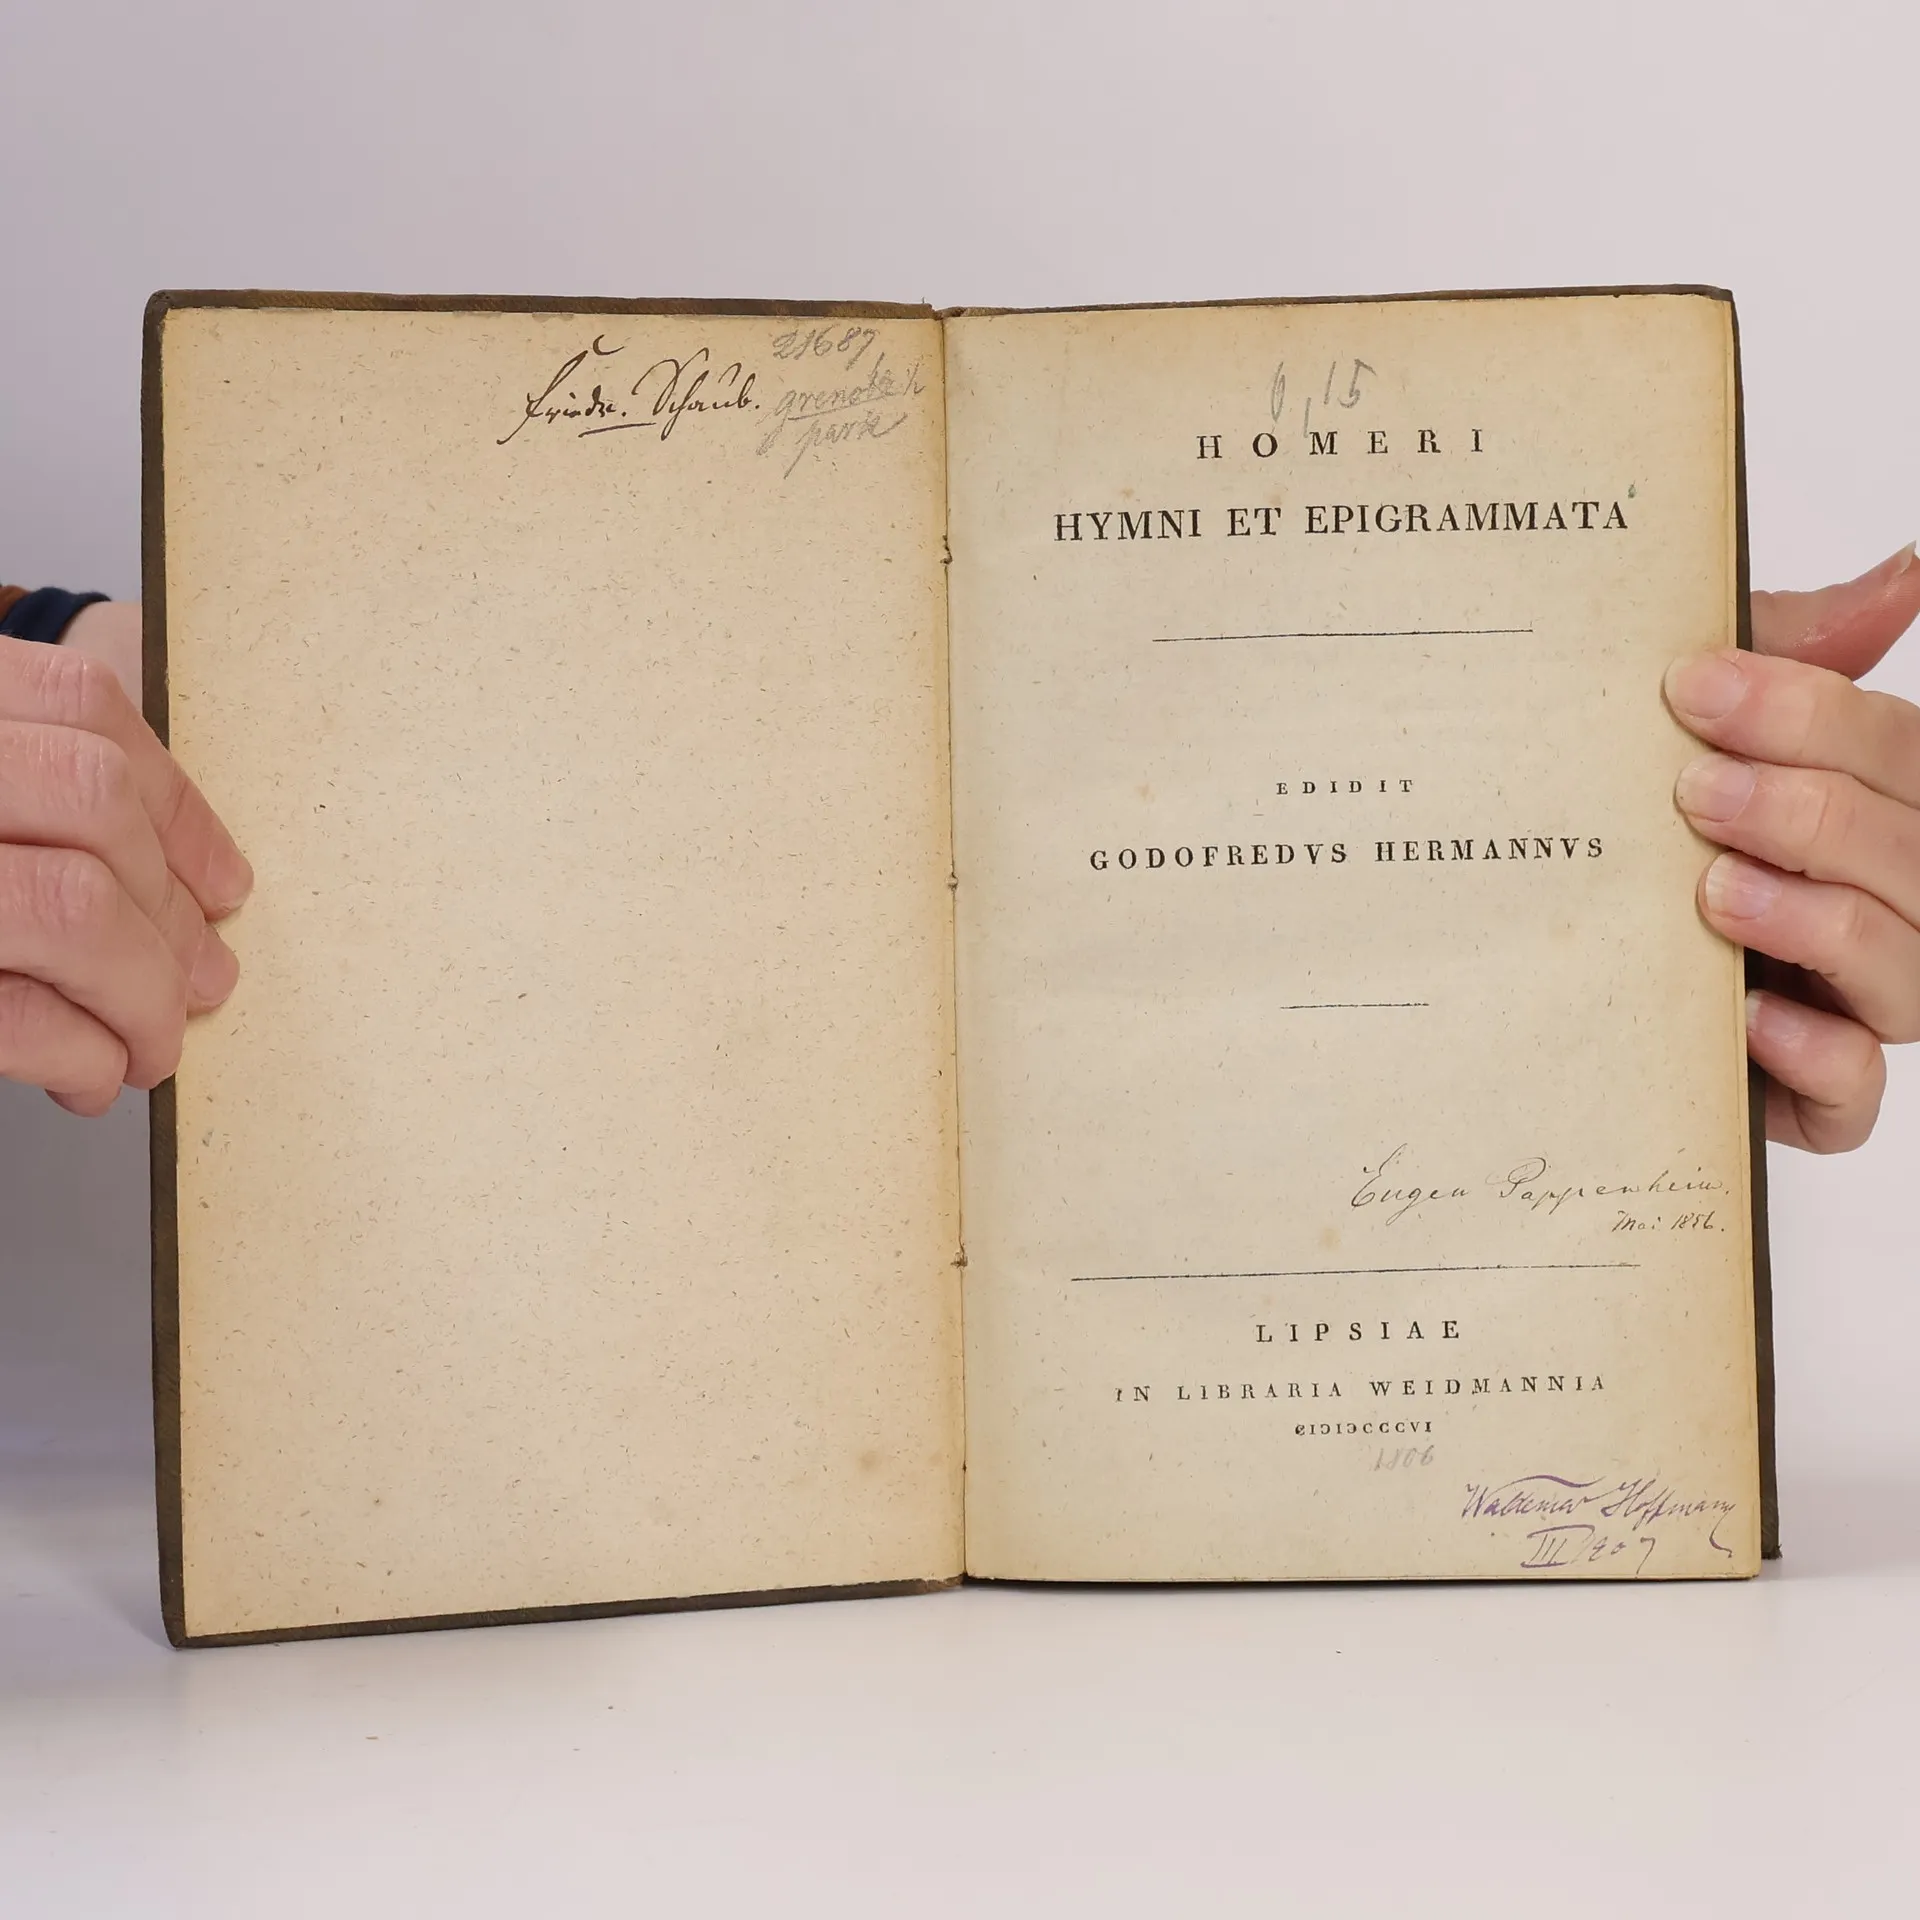 21687
Friedr. Schaub.
0,15
HOMERI
HYMNI ET EPIGRAMMATA
EDIDIT
GODOFREDVS HERMANNVS
Eugen Pappenheim.
Mai 1856.
LIPSIAE
IN LIBRARIA WEIDMANNIA
CIƆIƆCCCVI
1806
Waldemar Hoffmann
III 1907